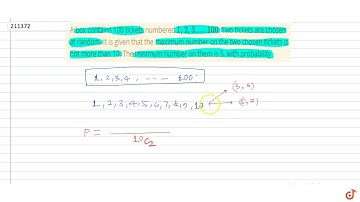 211372
A box contains 100 tickets numbered 1, 2, 3.....100. Two tickets are chosen
at random. It is given that the maximum number on the two chosen tickets is
not more than 10. The minimum number on them is 5, with probability
1, 2, 3, 4, ---- 100
1, 2, 3, 4, 5, 6, 7, 8, 9, 10
(5, 6)
(5, 7)
P =
¹⁰C₂